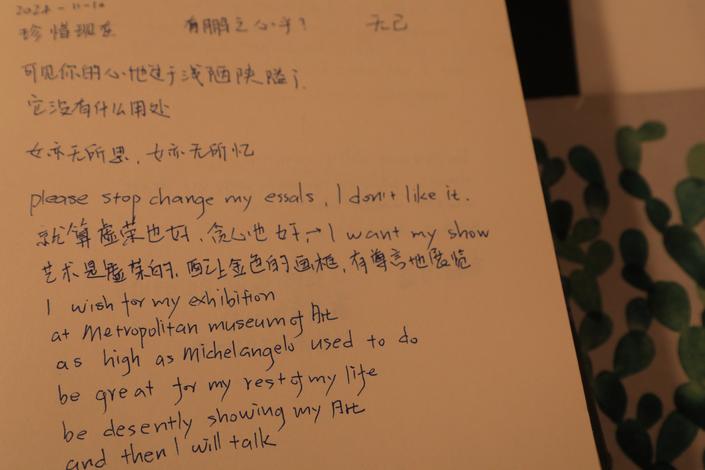 2024-11-10
珍惜现在 有鹏之心乎？ 无己
可见你的心地过于浅陋狭隘了.
它没有什么用处
女亦无所思，女亦无所忆
please stop change my essals, I don't like it.
就算虚荣也好，贪心也好，→ I want my show
艺术是虚荣的，配上金色的画框，有尊高地展览
I wish for my exhibition
at Metropolitan museum of Art
as high as Michelangelo used to do
be great for my rest of my life
be desently showing my Art
and then I will talk